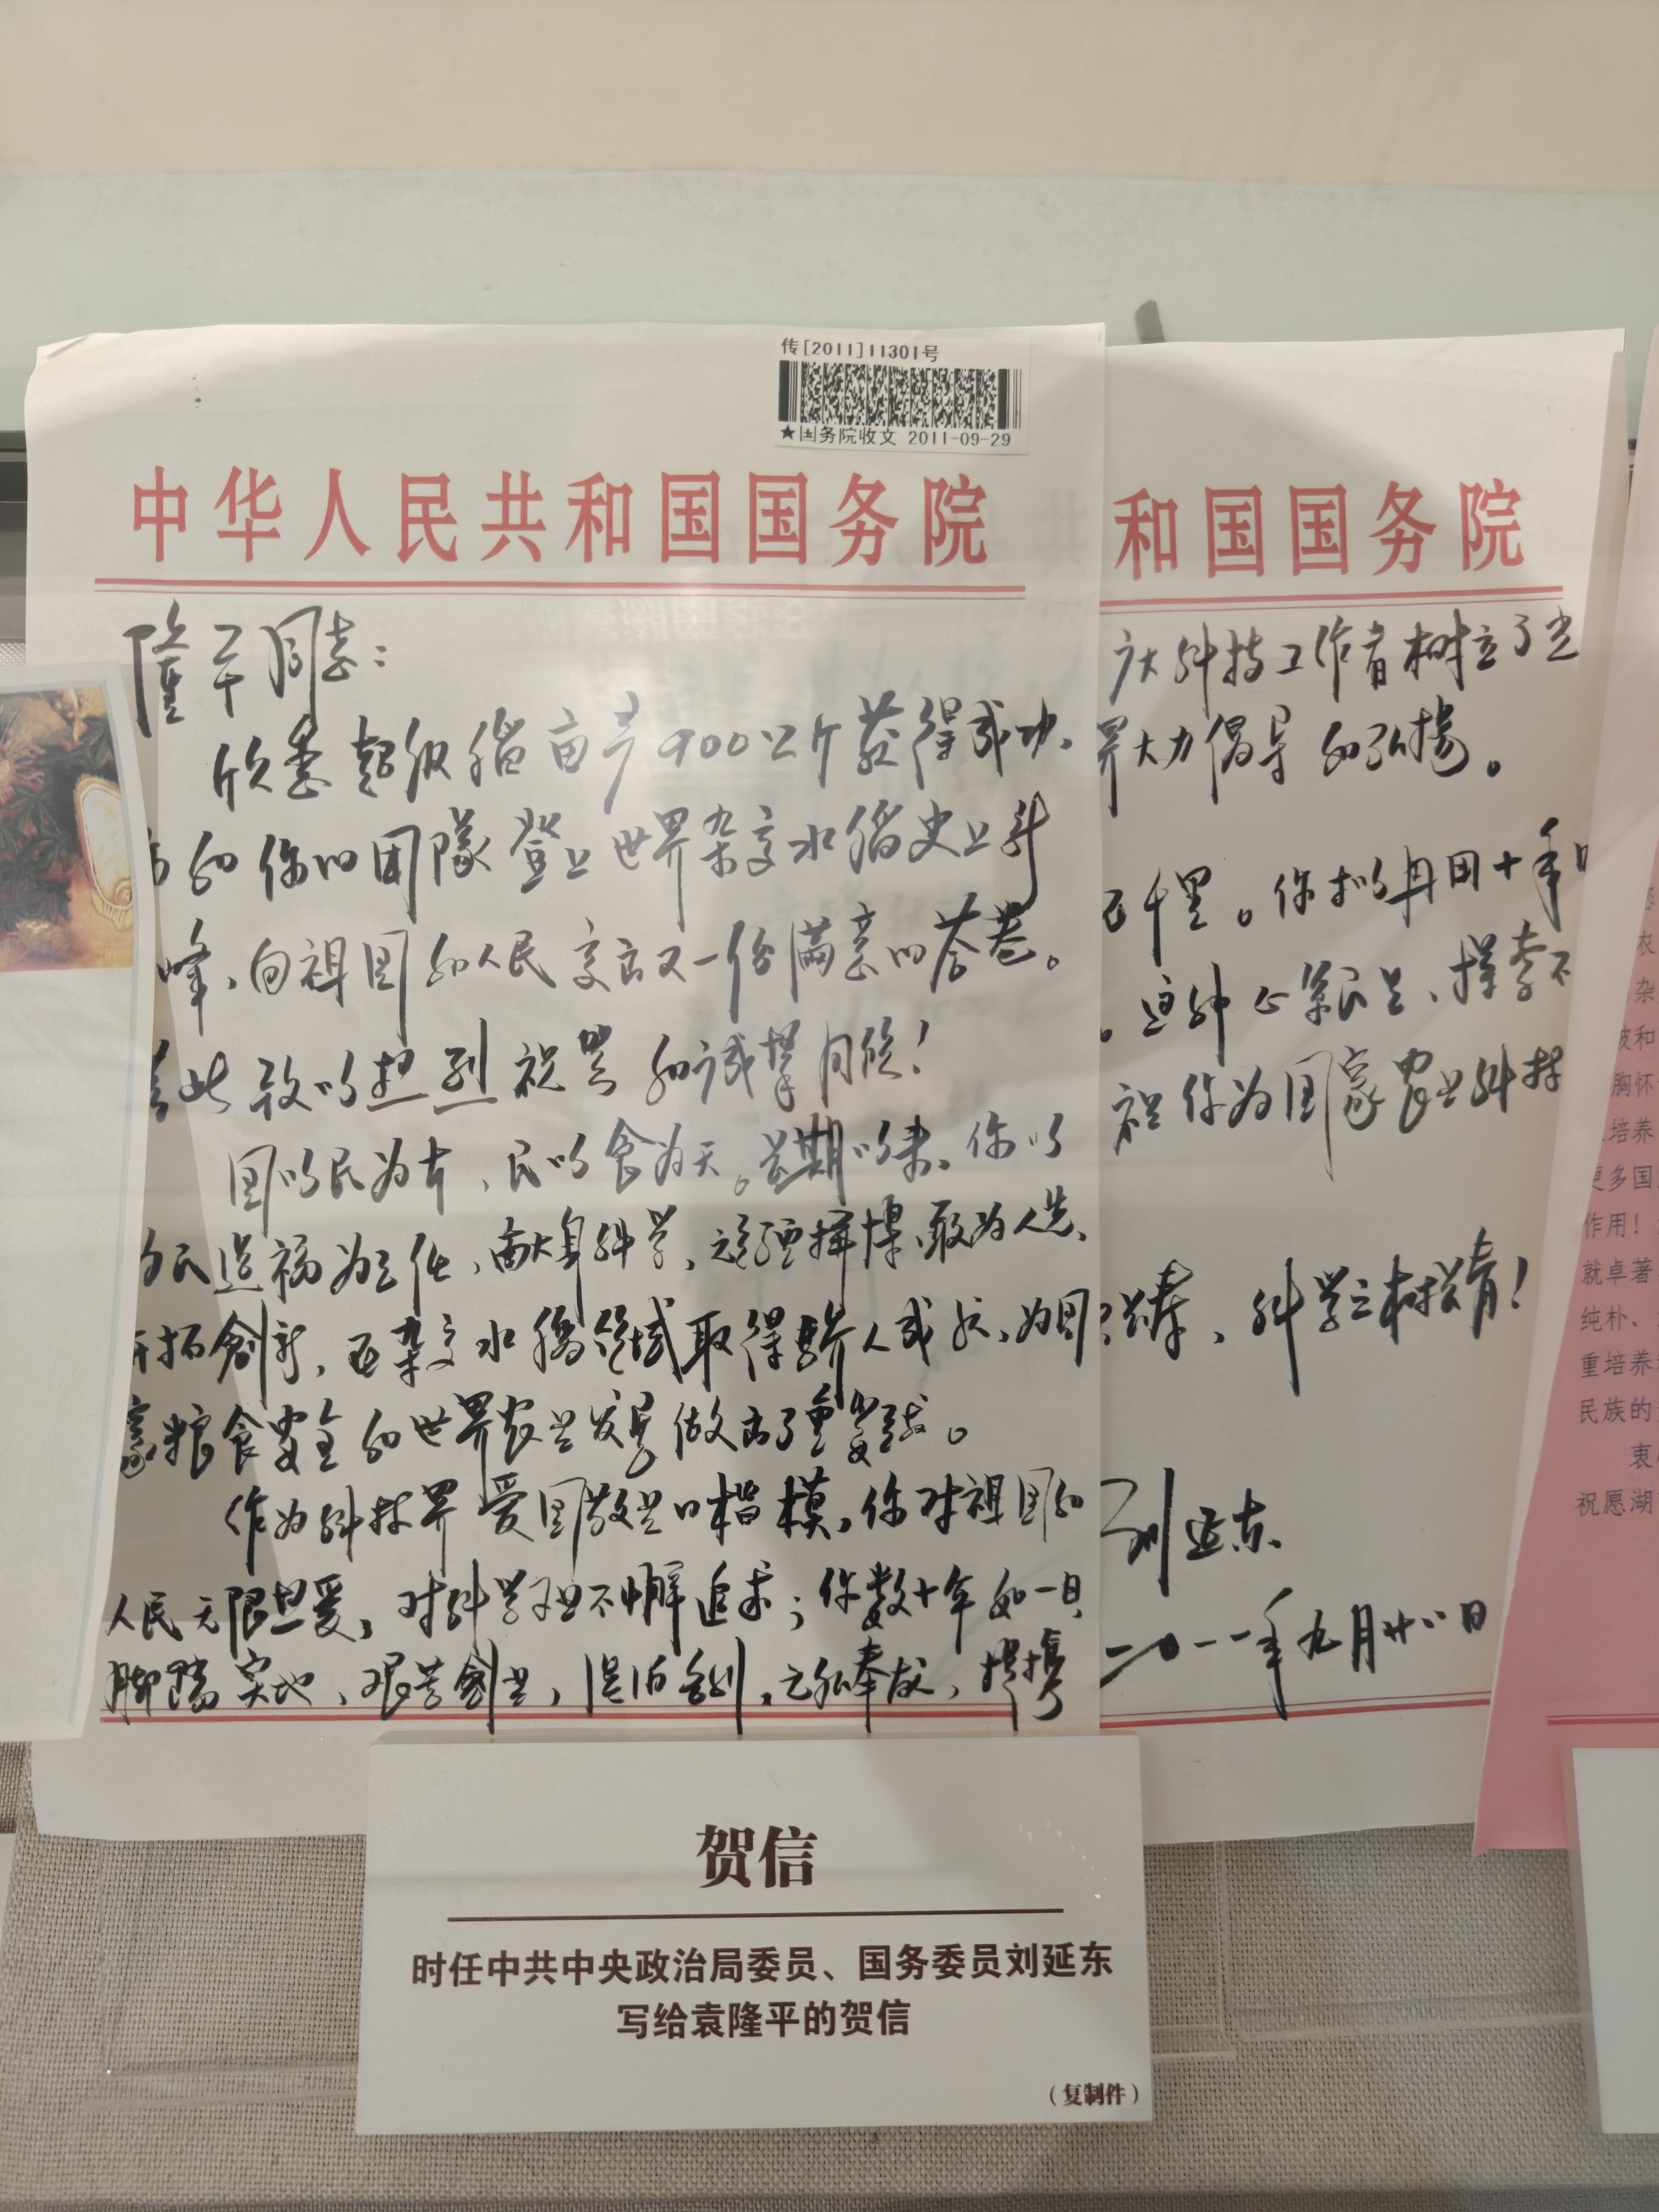 传[2011]11301号
★国务院收文 2011-09-29
中华人民共和国国务院
隆平同志：
欣悉超级稻亩产900公斤获得成功，
和你的团隊登上世界杂交水稻史上新
峰，向祖国和人民交出又一份满意的答卷。
此致以热烈祝贺和诚挚问候！
国以民为本，民以食为天。长期以来，你以
为民造福为己任，献身科学，顽强拼搏，敢为人先，
开拓創新，在杂交水稻领域取得骄人成就，为国
家粮食安全和世界农业发展做出了重要贡献。
作为科技界爱国敬业的楷模，你对祖国和
人民无限热爱，对科学事业不懈追求；你数十年如一日
脚踏实地，艰苦創业，淡泊名利，无私奉献，提携
共和国国务院
广大科技工作者树立了光
界大力倡导和弘扬。
千里。你拟以再用十年时
。这种，探索不
祝你为国家农业科技
，科学之树常青！
刘延东
二〇一一年九月廿八日
农
杂
和
胸怀
培养
更多国
作用！
就卓著
纯朴、
重培养
民族的
衷
祝愿湖
贺信
时任中共中央政治局委员、国务委员刘延东
写给袁隆平的贺信
（复制件）